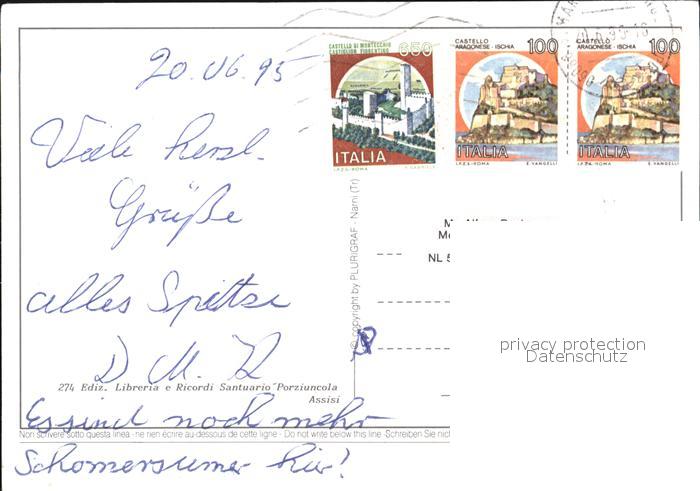 CASTELLO DI MONTECCHIO
CASTIGLION FIORENTINO
650
ITALIA
I.P.Z.S.-ROMA
CASTELLO
ARAGONESE - ISCHIA
100
ITALIA
I.P.Z.S.-ROMA E. VANGELLI
CASTELLO
ARAGONESE - ISCHIA
100
ITALIA
I.P.Z.S.-ROMA E. VANGELLI
20.06.95
Viele herzl.
Grüße
alles Spitze
D M. R
274 Ediz. Libreria e Ricordi Santuario "Porziuncola
Assisi
Es sind noch mehr
Non scrivere sotto questa linea - ne rien écrire au-dessous de cette ligne - Do not write below this line - Schreiben Sie nich
hier!
© copyright by PLURIGRAF - Narni (Tr)
NL 5
privacy protection
Datenschutz